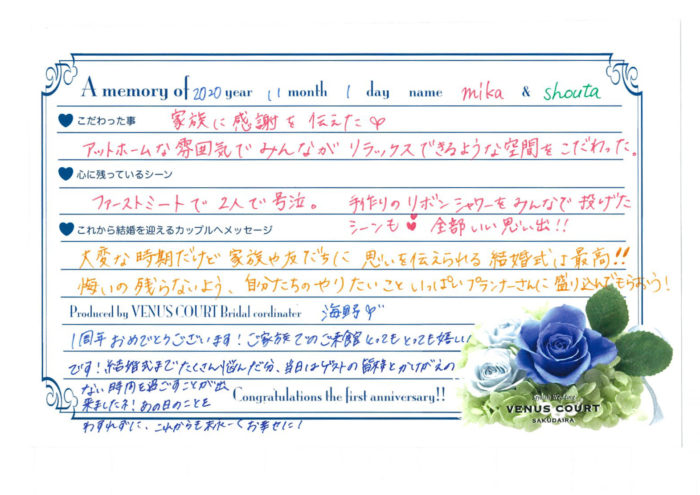 A memory of 2020 year 11 month 1 day name mika & shouta
こだわった事 家族に感謝を伝えた♡
アットホームな雰囲気でみんながリラックスできるような空間をこだわった。
心に残っているシーン
ファーストミートで2人で号泣。 手作りのリボンシャワーをみんなで投げた
シーンも♥ 全部いい思い出!!
これから結婚を迎えるカップルへメッセージ
大変な時期だけど家族や友だちに思いを伝えられる結婚式は最高!!
悔いの残らないよう、自分たちのやりたいこといっぱいプランナーさんに盛り込んでもらおう!
Produced by VENUS COURT Bridal cordinater 海野
1周年おめでとうございます!ご家族でのご来館とってもとっても嬉しい
です!結婚式までたくさん悩んだ分、当日はゲストの皆様とかけがえの
ない時間を過ごすことが出
来ましたネ!あの日のことを
わすれずに、これからも末永ーくお幸せに!
Congratulations the first anniversary!!
VENUS COURT
SAKUDAIRA